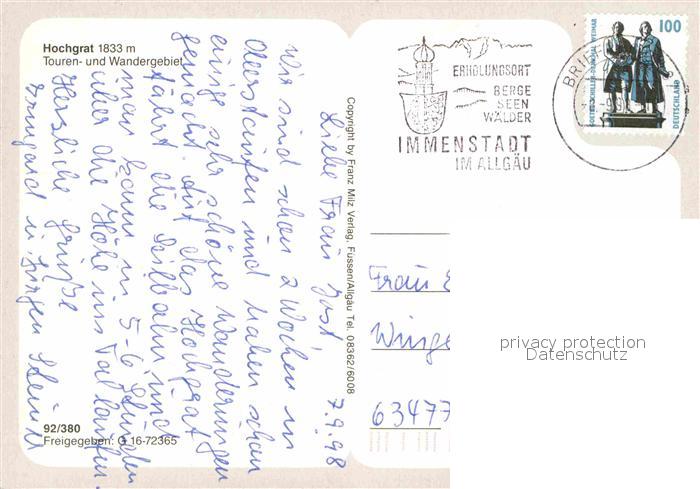 Hochgrat 1833 m
Touren- und Wandergebiet
7.9.98
Liebe Frau Jost
Wir sind schon 2 Wochen in
Oberstaufen und haben schon
einige sehr schöne Wanderungen
gemacht. Auf das Hochgrat
fährt die Seilbahn und
man kann in 5-6 Stunden
über die Höhe ins Tal laufen.
Herzliche Grüße
Irmgard u. Jürgen
92/380
Freigegeben: G 16-72365
Copyright by Franz Milz Verlag, Füssen/Allgäu Tel. 08362/6008
ERHOLUNGSORT
BERGE
SEEN
WÄLDER
IMMENSTADT
IM ALLGÄU
100
GOETHE-SCHILLER-DENKMAL WEIMAR
DEUTSCHLAND
BRIE
Frau
63477
privacy protection
Datenschutz